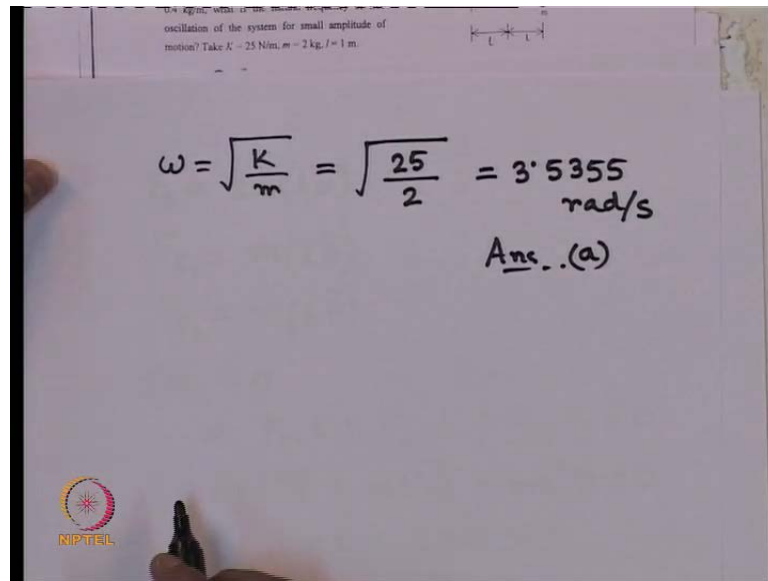 oscillation of the system for small amplitude of
motion? Take K = 25 N/m, m = 2 kg, l = 1 m
m
l L
ω = √(K/m) = √(25/2) = 3.5355
rad/s
Ans.. (a)
NPTEL